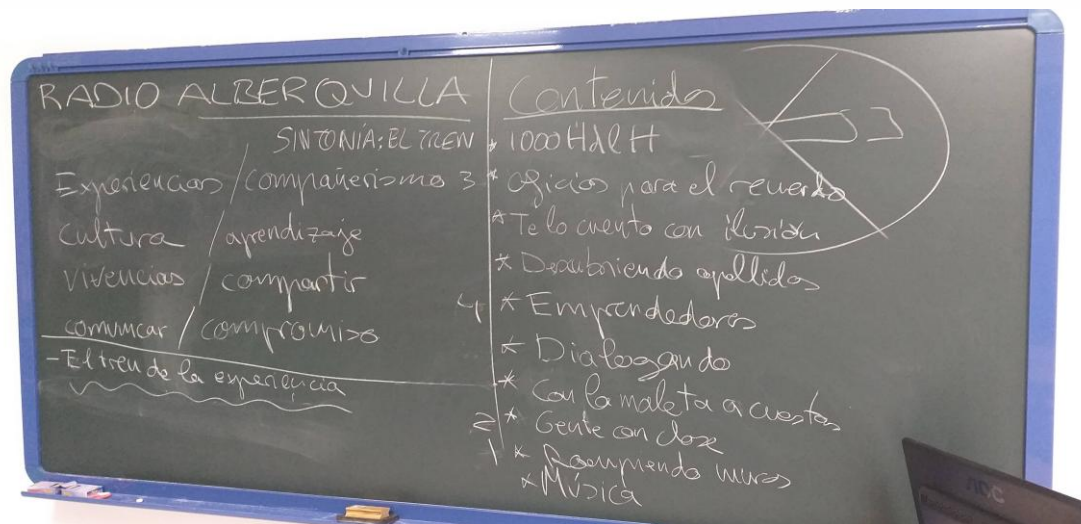 RADIO ALBERQUILLA
SINTONÍA: EL TREN
Experiencias / compañerismo
cultura / aprendizaje
Vivencias / compartir
comunicar / compromiso
- El tren de la experiencia
Contenidos
* 1000 H
3 * oficios para el recuerdo
* Te lo cuento con ilusión
* Descubriendo apellidos
4 * Emprendedores
* Dialogando
* Con la maleta a cuestas
2 * Gente con clase
1 * Roompiendo muros
* Música